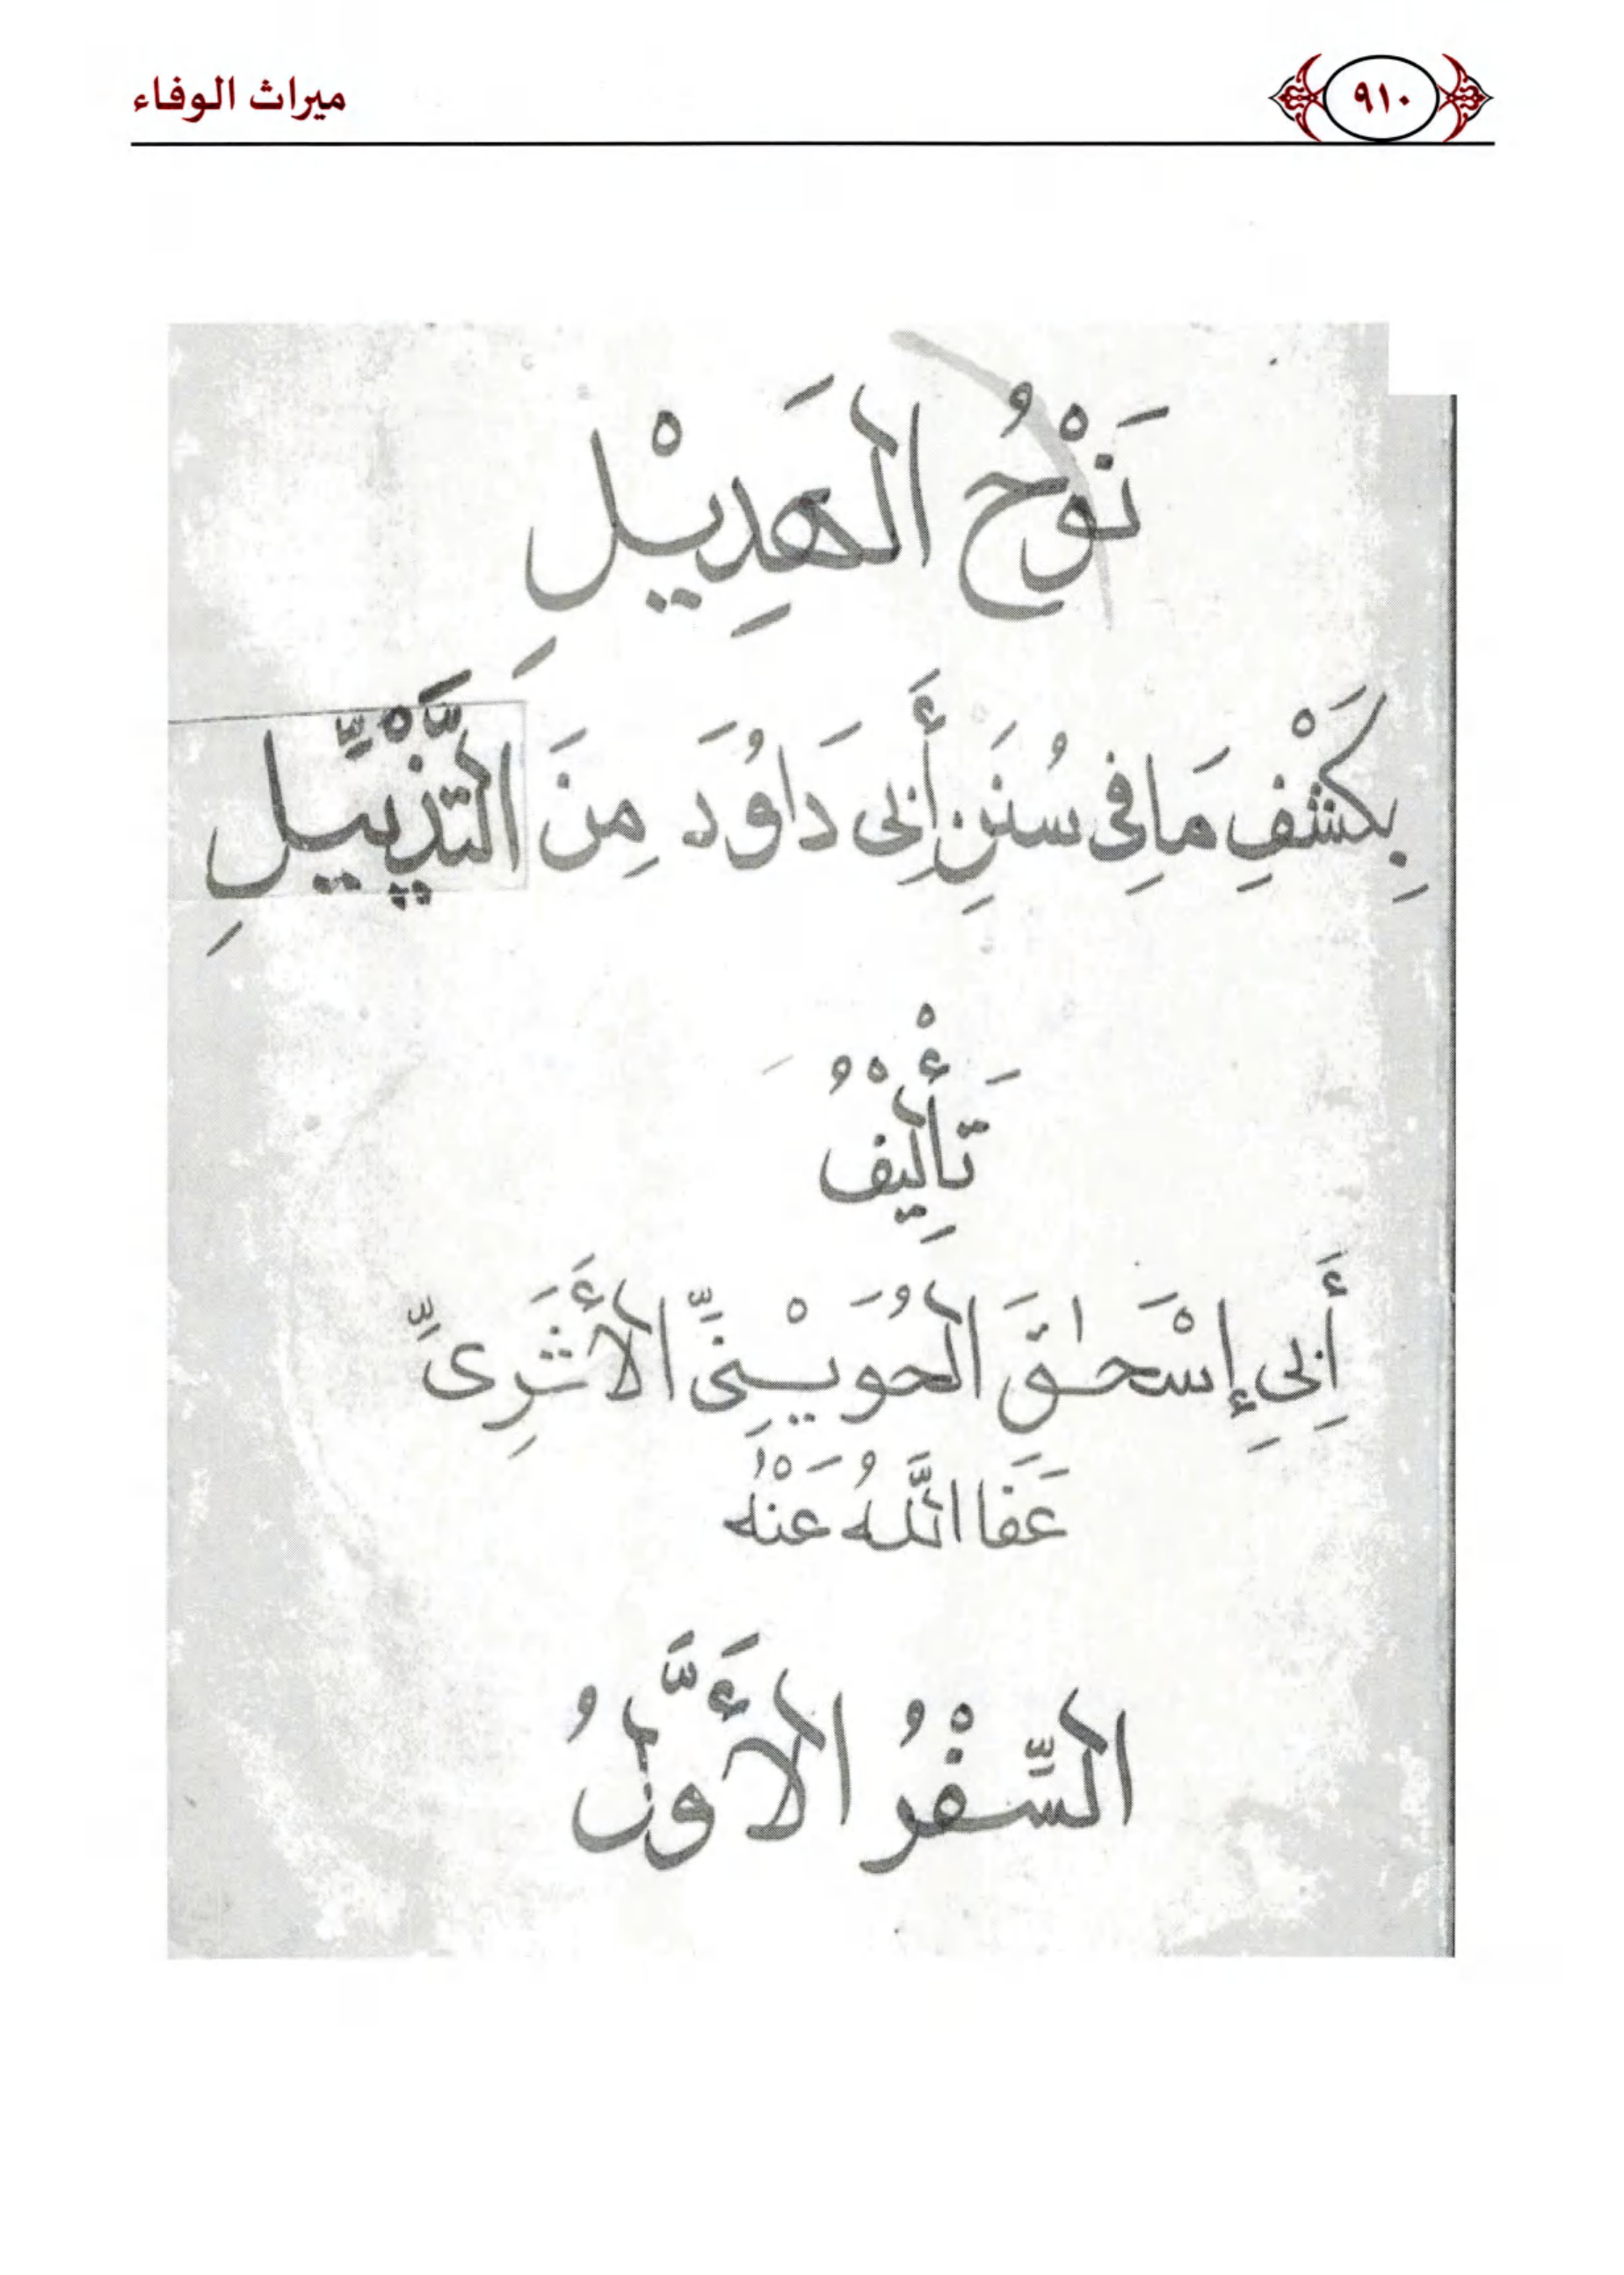 ميراث الوفاء
٩١٠
نَوْحُ الْهَدِيْلِ
بِكَشْفِ مَا فِى سُنَنِ أَبِى دَاوُدَ مِنَ التَّذْيِيْلِ
تَأْلِيْفُ
أَبِى إِسْحٰقَ الْحُوَيْنِىِّ الْأَثَرِىِّ
عَفَا اللَّهُ عَنْهُ
السِّفْرُ الْأَوَّلُ